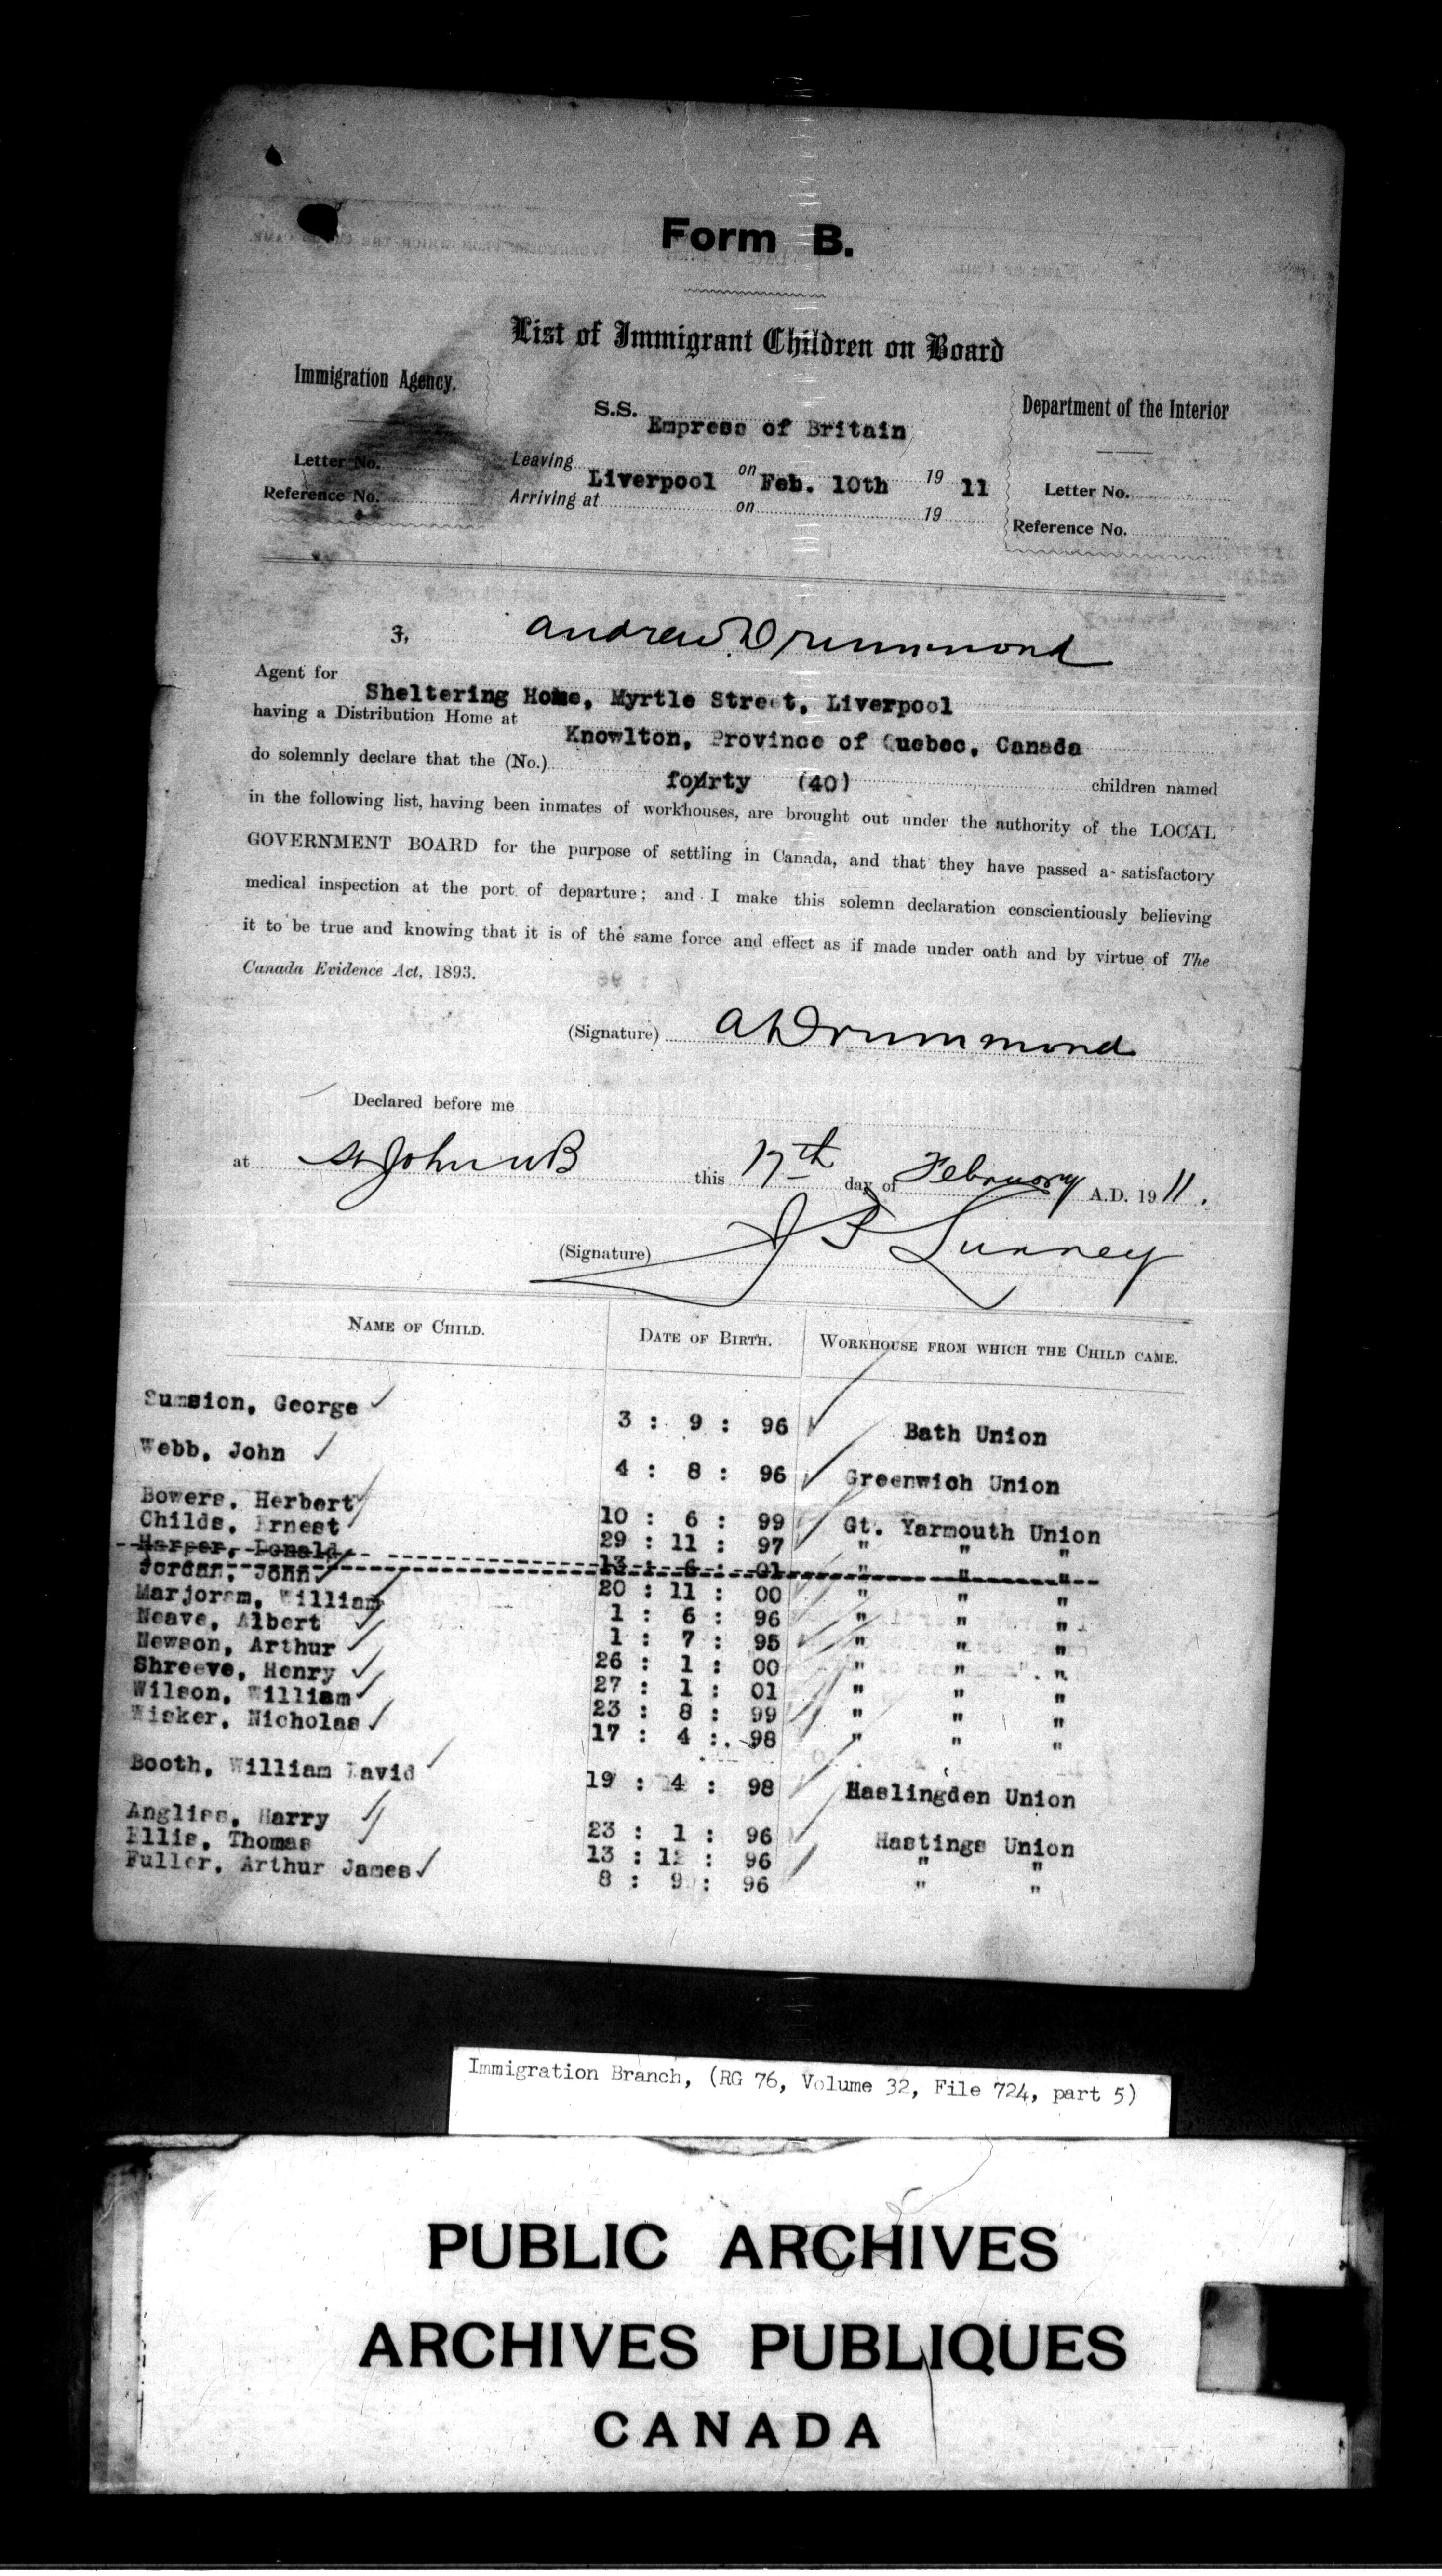 Form B.
List of Immigrant Children on Board
Immigration Agency.
Department of the Interior
S.S. Empress of Britain
Letter No.
Leaving Liverpool on Feb. 10th 19 11
Letter No.
Reference No.
Arriving at on 19
Reference No.
I, Andrew Drummond
Agent for Sheltering Home, Myrtle Street, Liverpool
having a Distribution Home at Knowlton, Province of Quebec, Canada
do solemnly declare that the (No.) fourty (40) children named
in the following list, having been inmates of workhouses, are brought out under the authority of the LOCAL
GOVERNMENT BOARD for the purpose of settling in Canada, and that they have passed a satisfactory
medical inspection at the port of departure; and I make this solemn declaration conscientiously believing
it to be true and knowing that it is of the same force and effect as if made under oath and by virtue of The
Canada Evidence Act, 1893.
(Signature) A Drummond
Declared before me
at St John NB this 17th day of February A.D. 1911.
(Signature) J P Lunney
NAME OF CHILD. DATE OF BIRTH. WORKHOUSE FROM WHICH THE CHILD CAME.
Sumsion, George 3 : 9 : 96 Bath Union
Webb, John 4 : 8 : 96 Greenwich Union
Bowers, Herbert 10 : 6 : 99 Gt. Yarmouth Union
Childs, Ernest 29 : 11 : 97 " " "
Harper, Donald 13 : 6 : 01 " " "
Jordan, John 20 : 11 : 00 " " "
Marjoram, William 1 : 6 : 96 " " "
Neave, Albert 1 : 7 : 95 " " "
Newson, Arthur 26 : 1 : 00 " " "
Shreeve, Henry 27 : 1 : 01 " " "
Wilson, William 23 : 8 : 99 " " "
Wisker, Nicholas 17 : 4 : 98 " " "
Booth, William David 19 : 4 : 98 Haslingden Union
Angliss, Harry 23 : 1 : 96 Hastings Union
Ellis, Thomas 13 : 12 : 96 " "
Fuller, Arthur James 8 : 9 : 96 " "
Immigration Branch, (RG 76, Volume 32, File 724, part 5)
PUBLIC ARCHIVES
ARCHIVES PUBLIQUES
CANADA